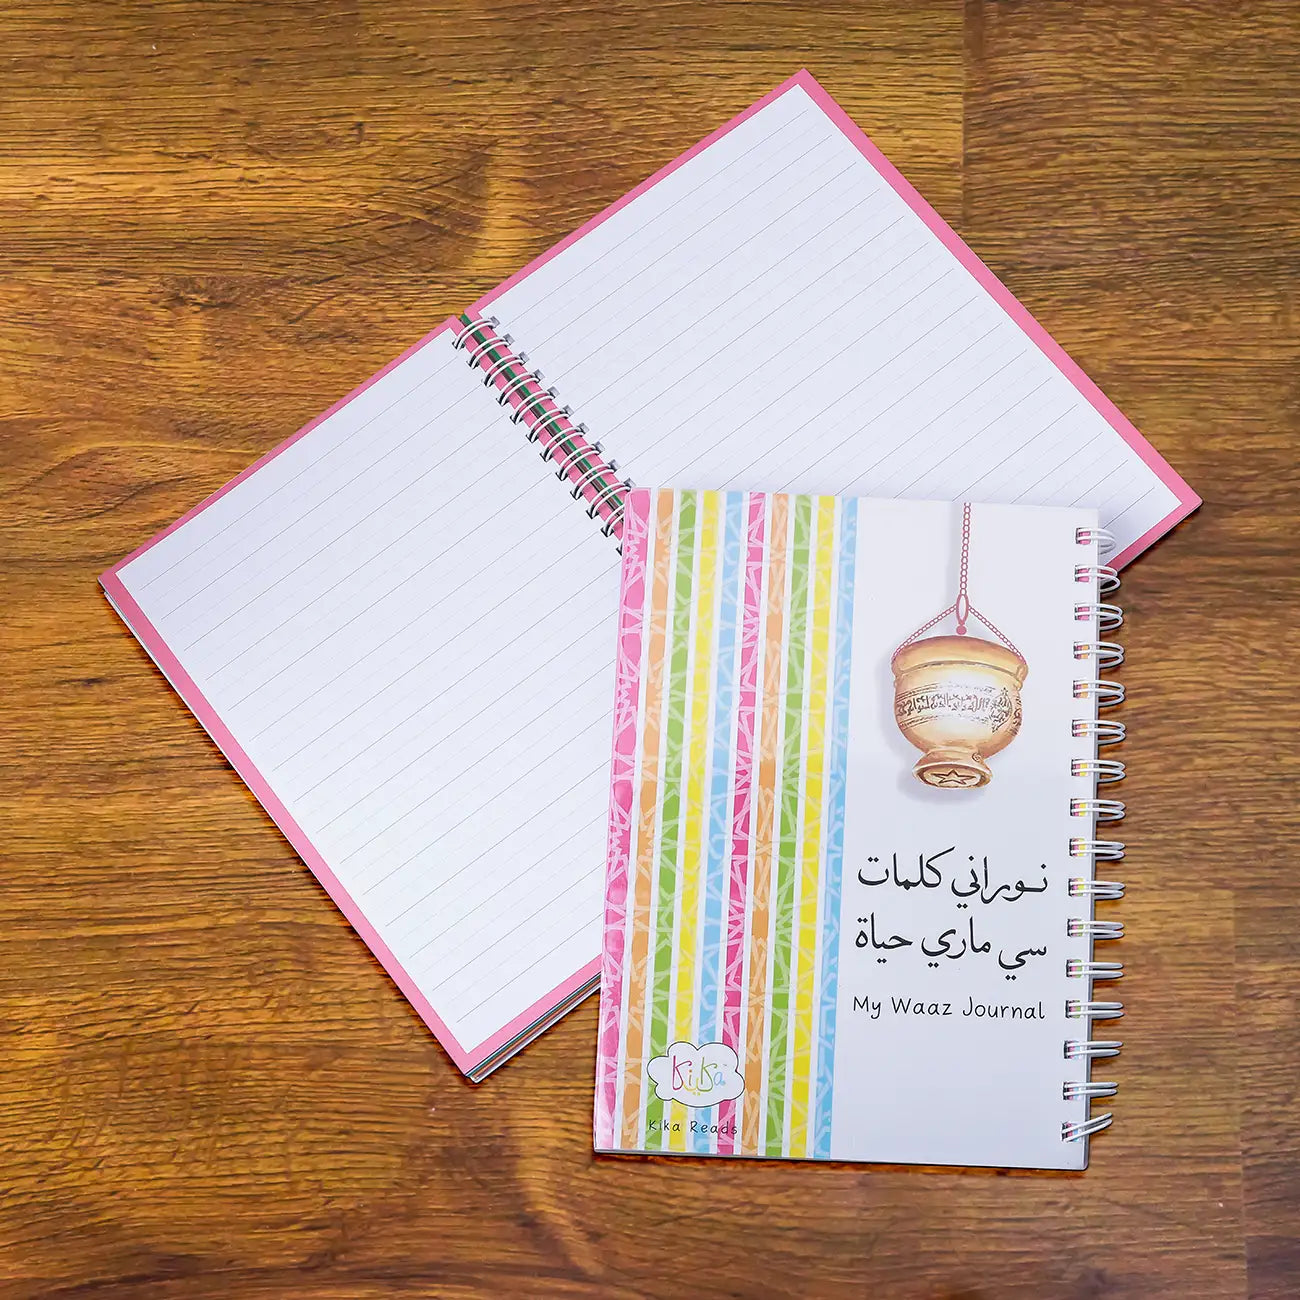 نوراني كلمات
سي ماري حياة
My Waaz Journal
Kika
Kika Reads